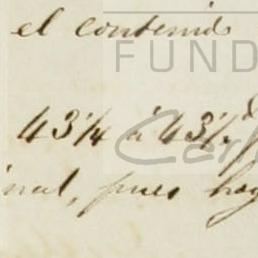 el contenido
FUND
43 1/4 á 43 1/2
inal, pues hay